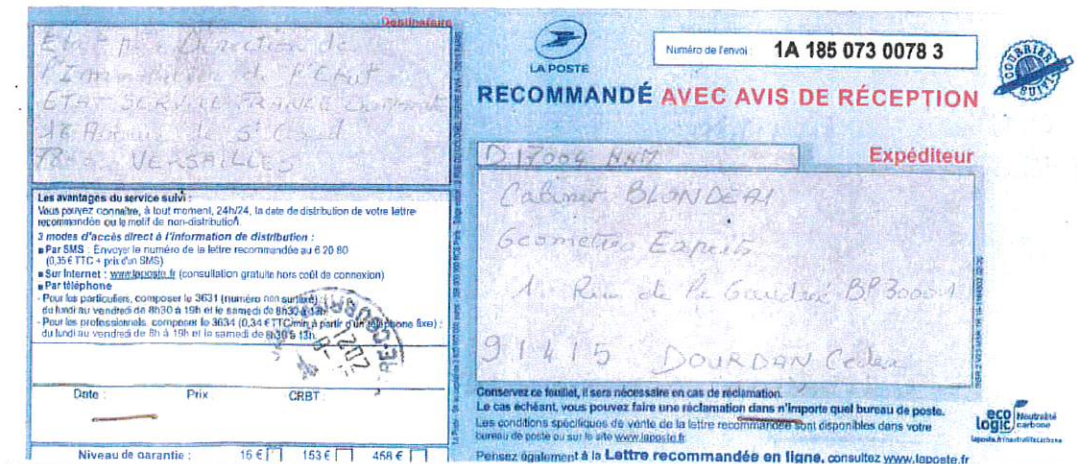 Destinataire
Etat par Direction de
l'Immobilier de l'Etat
ETAT SERVICE FRANCE
18 Avenue de St Cloud
VERSAILLES
Les avantages du service suivi :
Vous pouvez connaître, à tout moment, 24h/24, la date de distribution de votre lettre
recommandée ou le motif de non-distribution.
3 modes d'accès direct à l'information de distribution :
■ Par SMS : Envoyer le numéro de la lettre recommandée au 6 20 80
(0,35 € TTC + prix d'un SMS)
■ Sur Internet : www.laposte.fr (consultation gratuite hors coût de connexion)
■ Par téléphone
- Pour les particuliers, composer le 3631 (numéro non surtaxé)
du lundi au vendredi de 8h30 à 19h et le samedi de 8h30 à 13h
- Pour les professionnels, composer le 3634 (0,34 € TTC/min à partir d'un téléphone fixe) :
du lundi au vendredi de 8h à 19h et le samedi de 8h30 à 13h
2021
Date : Prix : CRBT :
Niveau de garantie : 16 € 153 € 458 €
LA POSTE
Numéro de l'envoi : 1A 185 073 0078 3
COURRIER SUIVI
RECOMMANDÉ AVEC AVIS DE RÉCEPTION
D17004
Expéditeur
Cabinet BLONDEAU
Geometres Experts
1 Rue de la BP 30001
91415 DOURDAN Cedex
Conservez ce feuillet, il sera nécessaire en cas de réclamation.
Le cas échéant, vous pouvez faire une réclamation dans n'importe quel bureau de poste.
Les conditions spécifiques de vente de la lettre recommandée sont disponibles dans votre
bureau de poste ou sur le site www.laposte.fr.
Pensez également à la Lettre recommandée en ligne, consultez www.laposte.fr
eco logic
Neutralité carbone
laposte.fr/neutralitecarbone